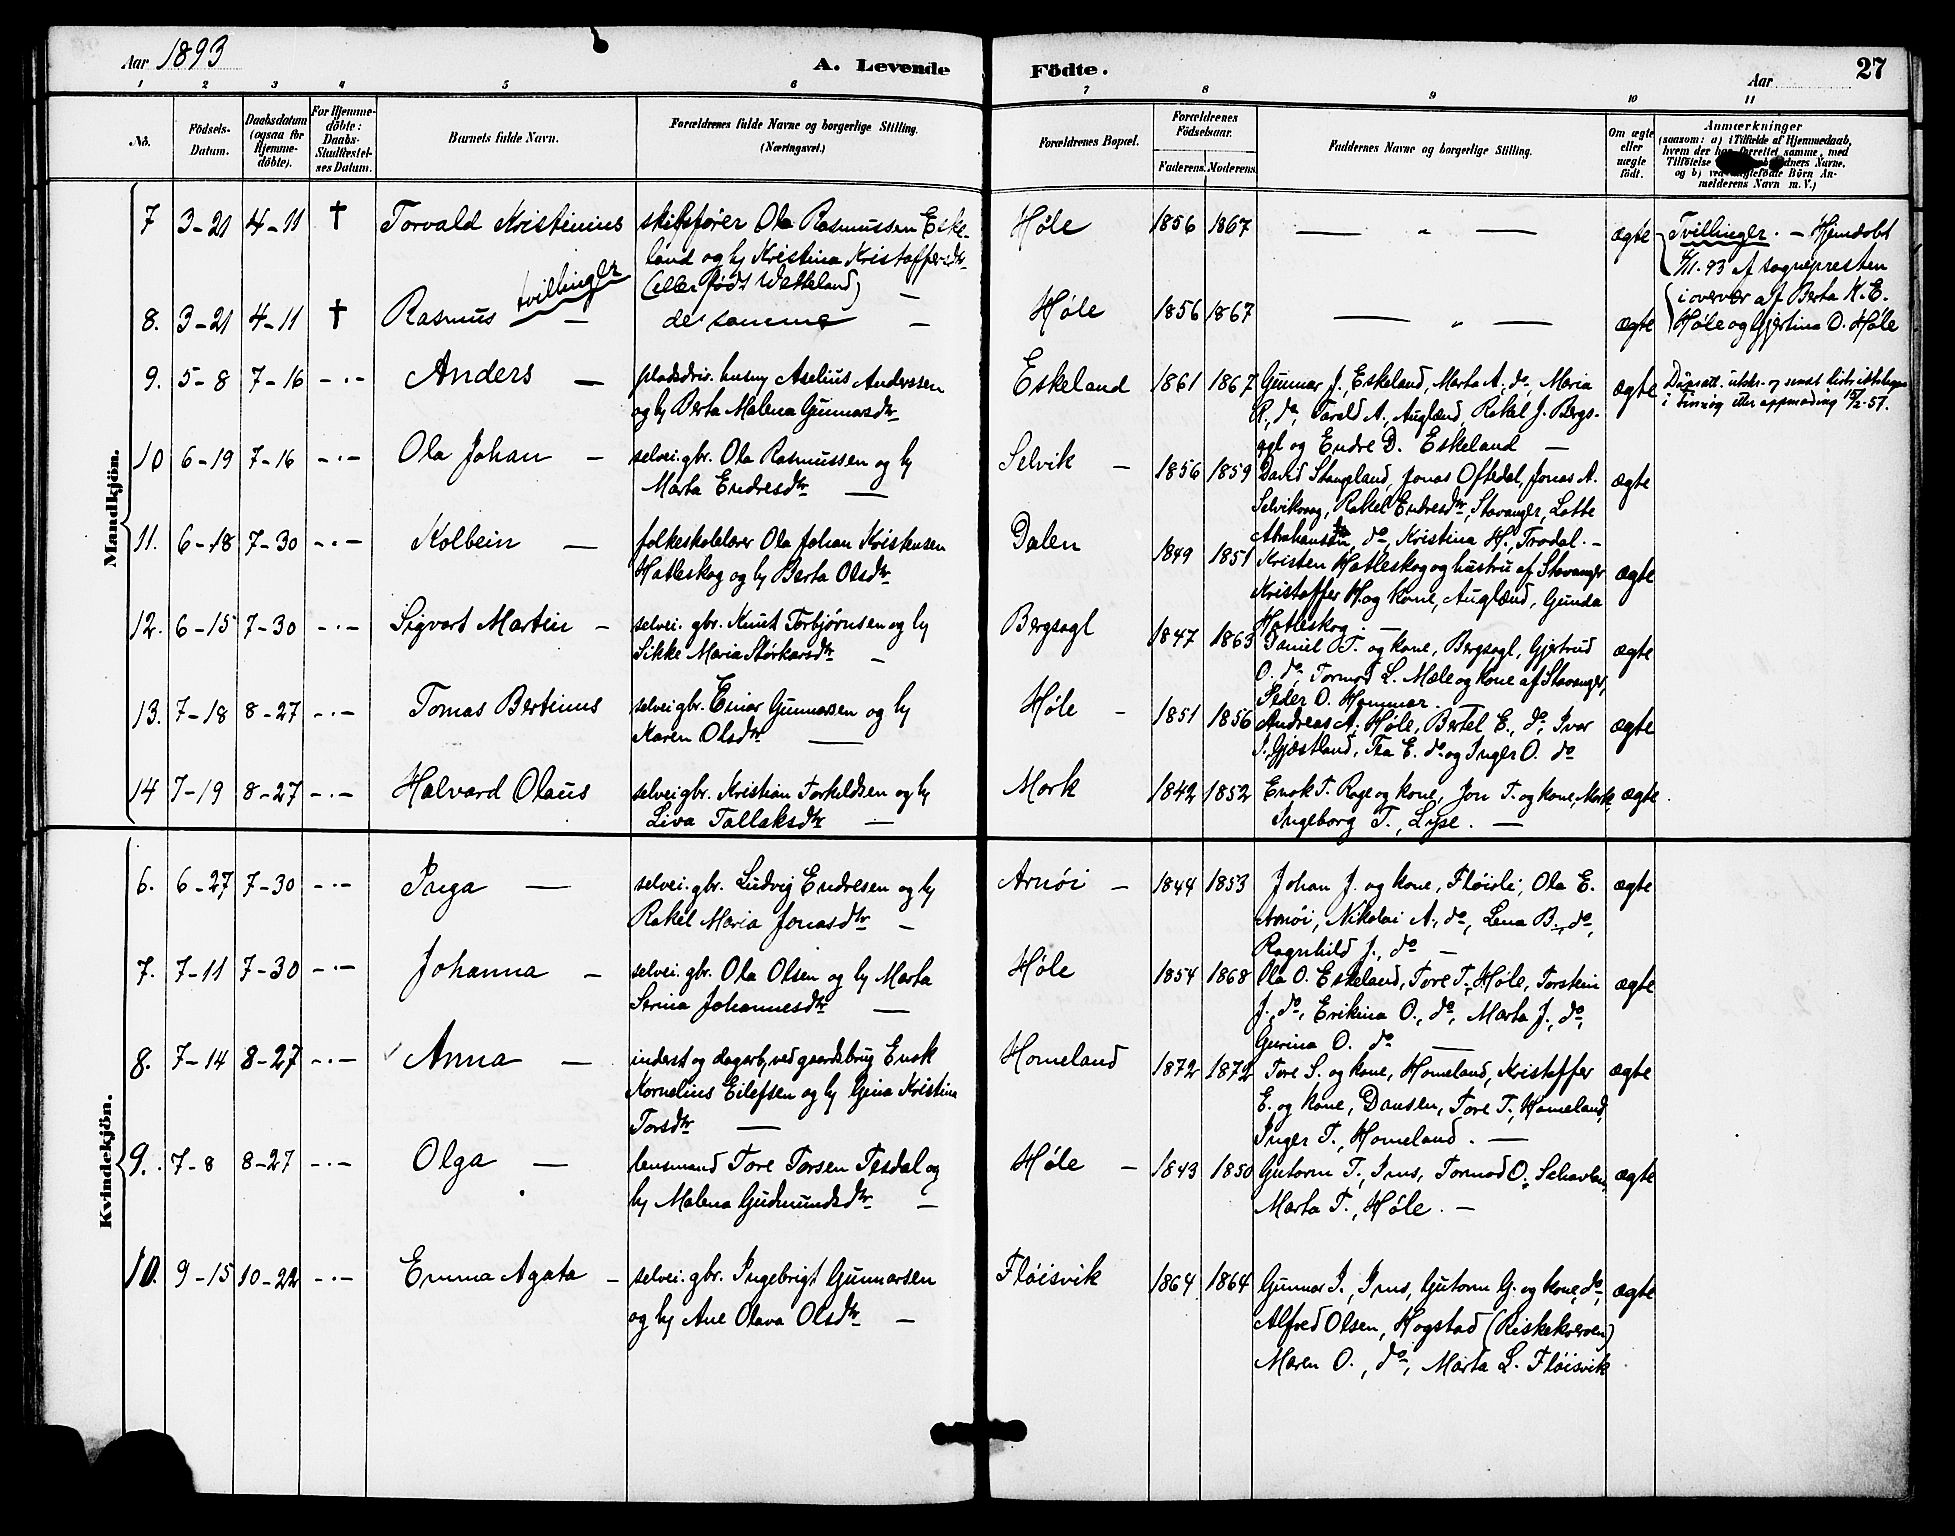 Aar 1893
A. Levende Födte.
Aar
27
1 2 3 4 5 6 7 8 9 10 11
No.
Födsels-Datum.
Daabsdatum (ogsaa for Hjemme-döbte).
For Hjemme-döbte: Daabs-Stadfæstel-ses Datum.
Barnets fulde Navn.
Forældrenes fulde Navne og borgerlige Stilling. (Næringsvei.)
Forældrenes Bopæl.
Forældrenes Födselsaar.
Faderens. Moderens.
Faddernes Navne og borgerlige Stilling.
Om ægte eller uægte födt.
Anmærkninger
(saasom: a) i Tilfælde af Hjemmedaab,
hvem der har forrettet samme, med
Tilföielse
og b) ved uægtefödte Börn An-
melderens Navn m. V.)
Mandkjön.
7 3-21 4-11 † Torvald Kristinius skibsfører Ola Rasmussen Eske-
land og h Kristina Kristoffersdtr
(eller født Wetteland) —
Høle 1856 1867 — " — ægte Tvillinger. — Hjemdøbt
/1.93 af sognepresten
tvillinger
8. 3-21 4-11 † Rasmus — de samme —
Høle 1856 1867 — " — ægte i overvær af Berta K. E.
Høle og Gjertina O. Høle
9. 5-8 7-16 -.- Anders — pladsdriv. husm Aselius Anderssen
og h Berta Malena Gunnarsdtr
Eskeland 1861 1867 Gunnar J. Eskeland, Marta A. do, Maria
R., do, Tarald A., Auglænd, Rakel J. Bergs-
agl og Endre D. Eskeland —
ægte
10 6-19 7-16 -.- Ola Johan — selvei. gbr. Ola Rasmussen og h
Marta Endresdtr —
Selvik — 1856 1859 David Stangeland, Jonas Oftedal, Jonas A.
Selvikvaag, Rakel Endresdtr, Stavanger, Lotte
Abrahamsen, do, Kristina H., Trodal. —
ægte
11. 6-18 7-30 -.- Kolbein — folkeskolelærer Ola Johan Kristensen
Hatleskog og h Berta Olsdtr
Dalen 1849 1851 Kristen Hatleskog og hustru af Stavanger
Kristoffer H. og kone, Auglænd, Gunda
Hatleskog. —
ægte
12. 6-15 7-30 -.- Sigvart Martin — selvei. gbr. Knut Torbjørnsen og h
Sikke Maria Størkarsdtr —
Bergsagl 1847 1863 Daniel T. og kone, Bergsagl, Gjertrud
O. do, Tormod L. Mæle og kone af Stavanger,
Peder O. Hammar.
ægte
13. 7-18 8-27 -.- Tomas Bertinus selvei gbr. Einar Gunnarsen og h
Karen Olsdtr —
Høle — 1851 1856 Andreas A. Høle, Bertel E., do, Ivar
I. Gjæstland, Tea E. do og Inger O. do
ægte
14 7-19 8-27 -.- Halvard Olaus selvei gbr. Kristian Torkeldsen og h
Liva Tallaksdtr —
Mork 1842 1852 Enok T. Rage og kone, Jon T. og kone, Mork,
Ingeborg T., Lyse. —
ægte
Kvindekjön.
6. 6-27 7-30 -.- Inga — selvei. gbr. Ludvig Endresen og h
Rakel Maria Jonasdtr —
Arnøi — 1844 1853 Johan J. og kone, Fløisli, Ola E.
Arnøi, Nikolai A., do, Lena B., do,
Ragnhild J., do —
ægte
7. 7-11 7-30 -.- Johanna — selvei. gbr. Ola Olsen og h Marta
Serina Johannesdtr —
Høle 1854 1868 Ola O. Eskeland, Tore T. Høle, Torstein
J., do, Erikina O., do, Marta J., do,
Gurina O. do —
ægte
8. 7-14 8-27 -.- Anna — inderst og dagarb. ved gaardsbrug Enok
Kornelius Eilefsen og h Gina Kristina
Torsdtr —
Homeland 1872 1872 Tore S. og kone, Homeland, Kristoffer
E. og kone, Dansen, Tore T., Homeland,
Inger T., Homeland. —
ægte
9. 7-8 8-27 -.- Olga — lensmand Tore Torsen Tesdal og
h Malena Gudmundsdtr —
Høle — 1843 1850 Gutorm T., Ims, Tormod O.
Marta T., Høle. —
ægte
10. 9-15 10-22 -.- Emma Agata — selvei. gbr. Ingebrigt Gunnarsen
og h Ane Olava Olsdtr —
Fløisvik 1864 1864 Gunnar I., Ims, Gutorm G. og kone, do,
Alfred Olsen, Hogstad (Riskekverven)
Maren O., do, Marta L. Fløisvik
ægte